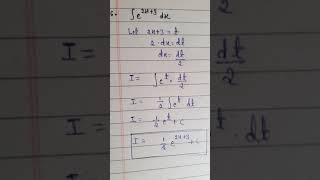 6. ∫e^{2x+3} dx
Let 2x+3 = t
2·dx = dt
dx = dt/2
I = ∫e^t · dt/2
I = 1/2 ∫e^t dt
I = 1/2 e^t + C
I = 1/2 e^{2x+3} + C